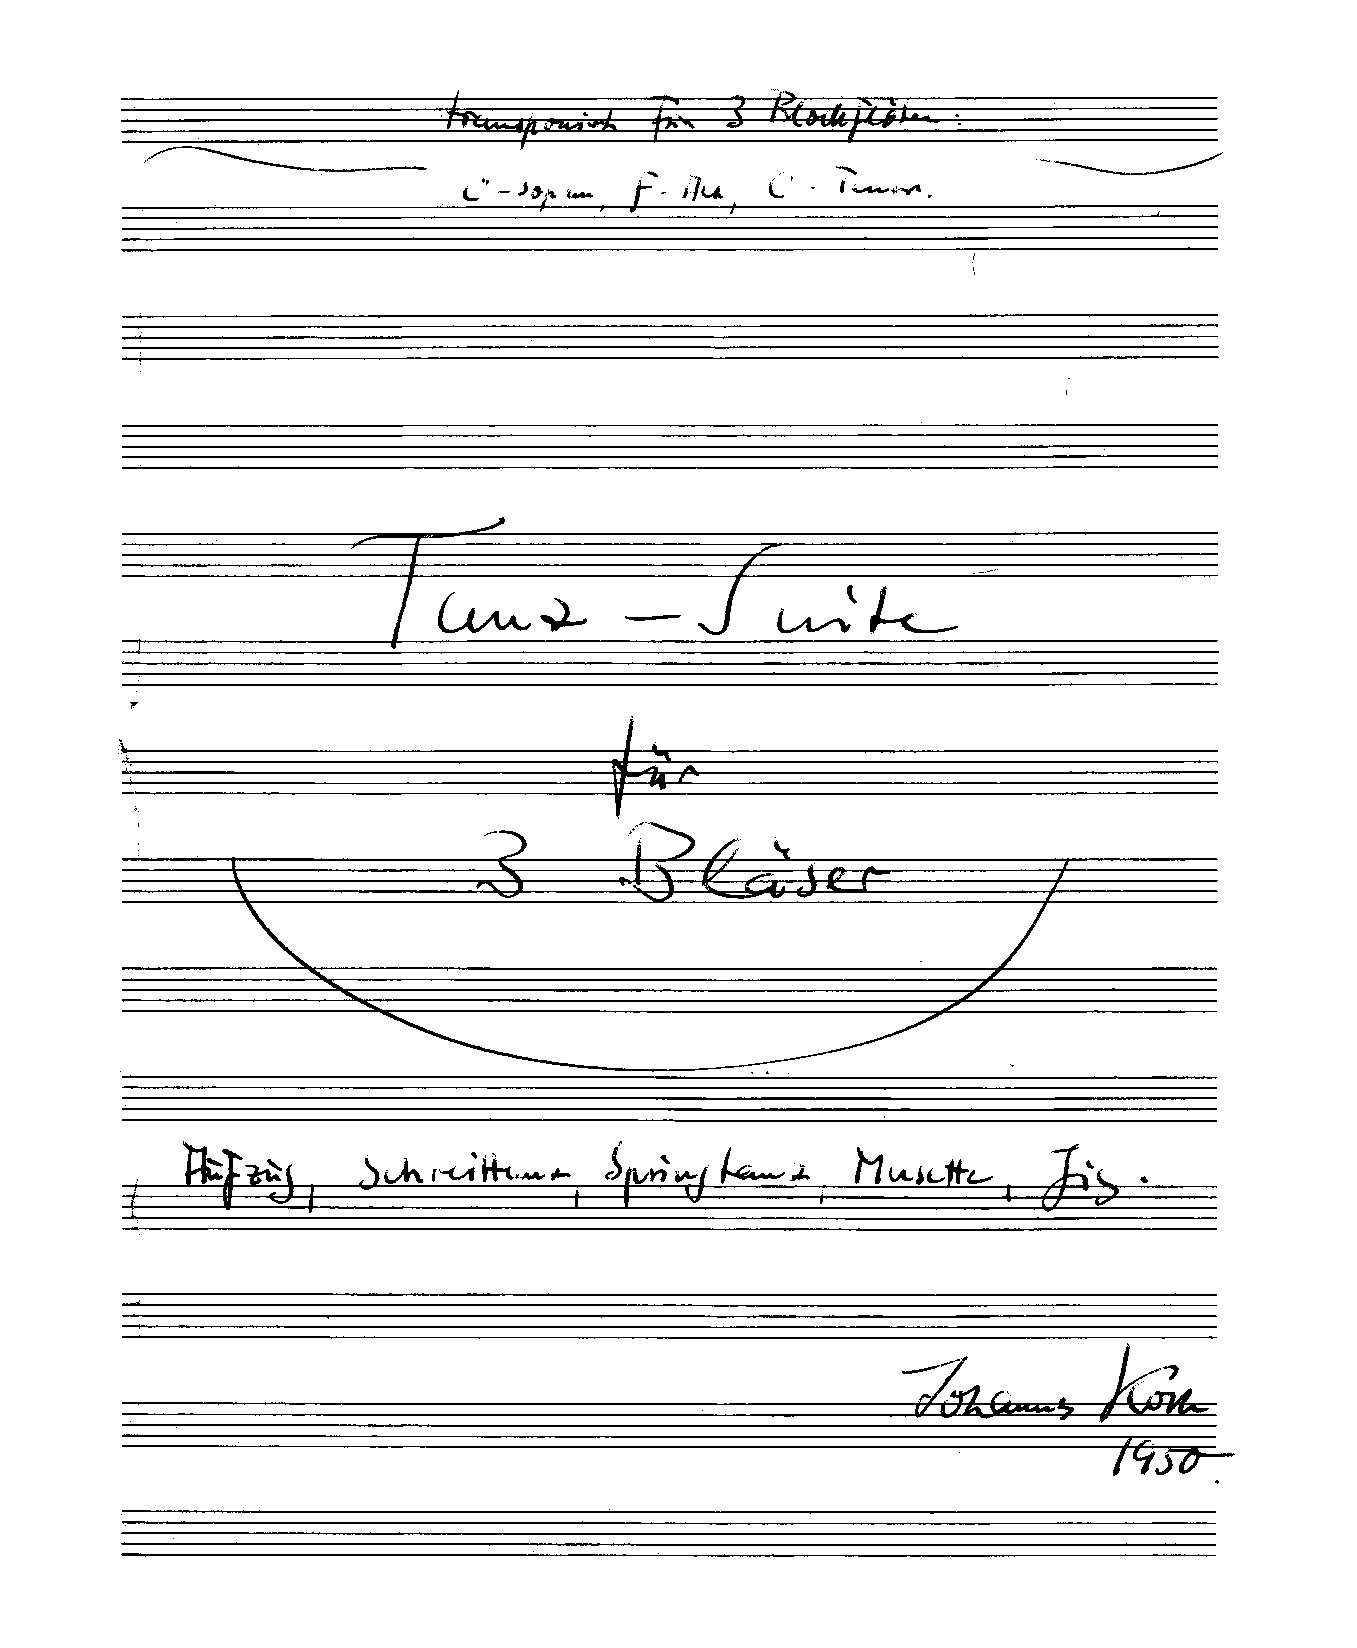 transponiert für 3 Blockflöten:
C-Sopran, F-Alt, C-Tenor.
Tanz-Suite
für
3 Bläser
Aufzug, Schreittanz, Springtanz, Musette, Jig.
Johannes Koch
1950.